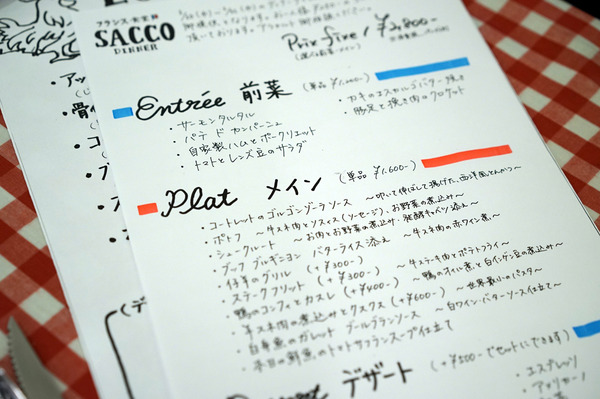 フランス食堂
SACCO
DINNER
Prix fixe / ¥3,800-
Entrée 前菜 (単品 ¥1,000-)
・サーモンタルタル
・パテ ド カンパーニュ
・自家製ハムとポークリエット
・トマトとレンズ豆のサラダ
・カキのエスカルゴバター焼き
・豚足と挽き肉のクロケット
Plat メイン (単品 ¥1,600-)
・コートレットのゴルゴンゾーラソース ～叩いて伸ばして揚げた、西洋風とんかつ～
・ポトフ ～牛スネ肉とソスィス(ソーセージ)、お野菜の煮込み～
・シュークルート ～お肉とお野菜の煮込み、発酵キャベツ添え～
・ブッフ ブルギニヨン バターライス添え ～牛スネ肉の赤ワイン煮～
・仔羊のグリル (+¥300-)
・ステークフリット (+¥300-) ～牛ステーキ肉とポテトフライ～
・鴨のコンフィとカスレ (+¥400-) ～鴨のオイル煮と白インゲン豆の煮込み～
・羊スネ肉の煮込みとクスクス (+¥600-) ～世界最小のパスタ～
・白身魚のガレット ブールブランソース ～白ワイン・バターソース仕立て～
・本日の鮮魚のトマトサフランスープ仕立て
デザート (+¥500-でセットにできます)
・エスプレッソ